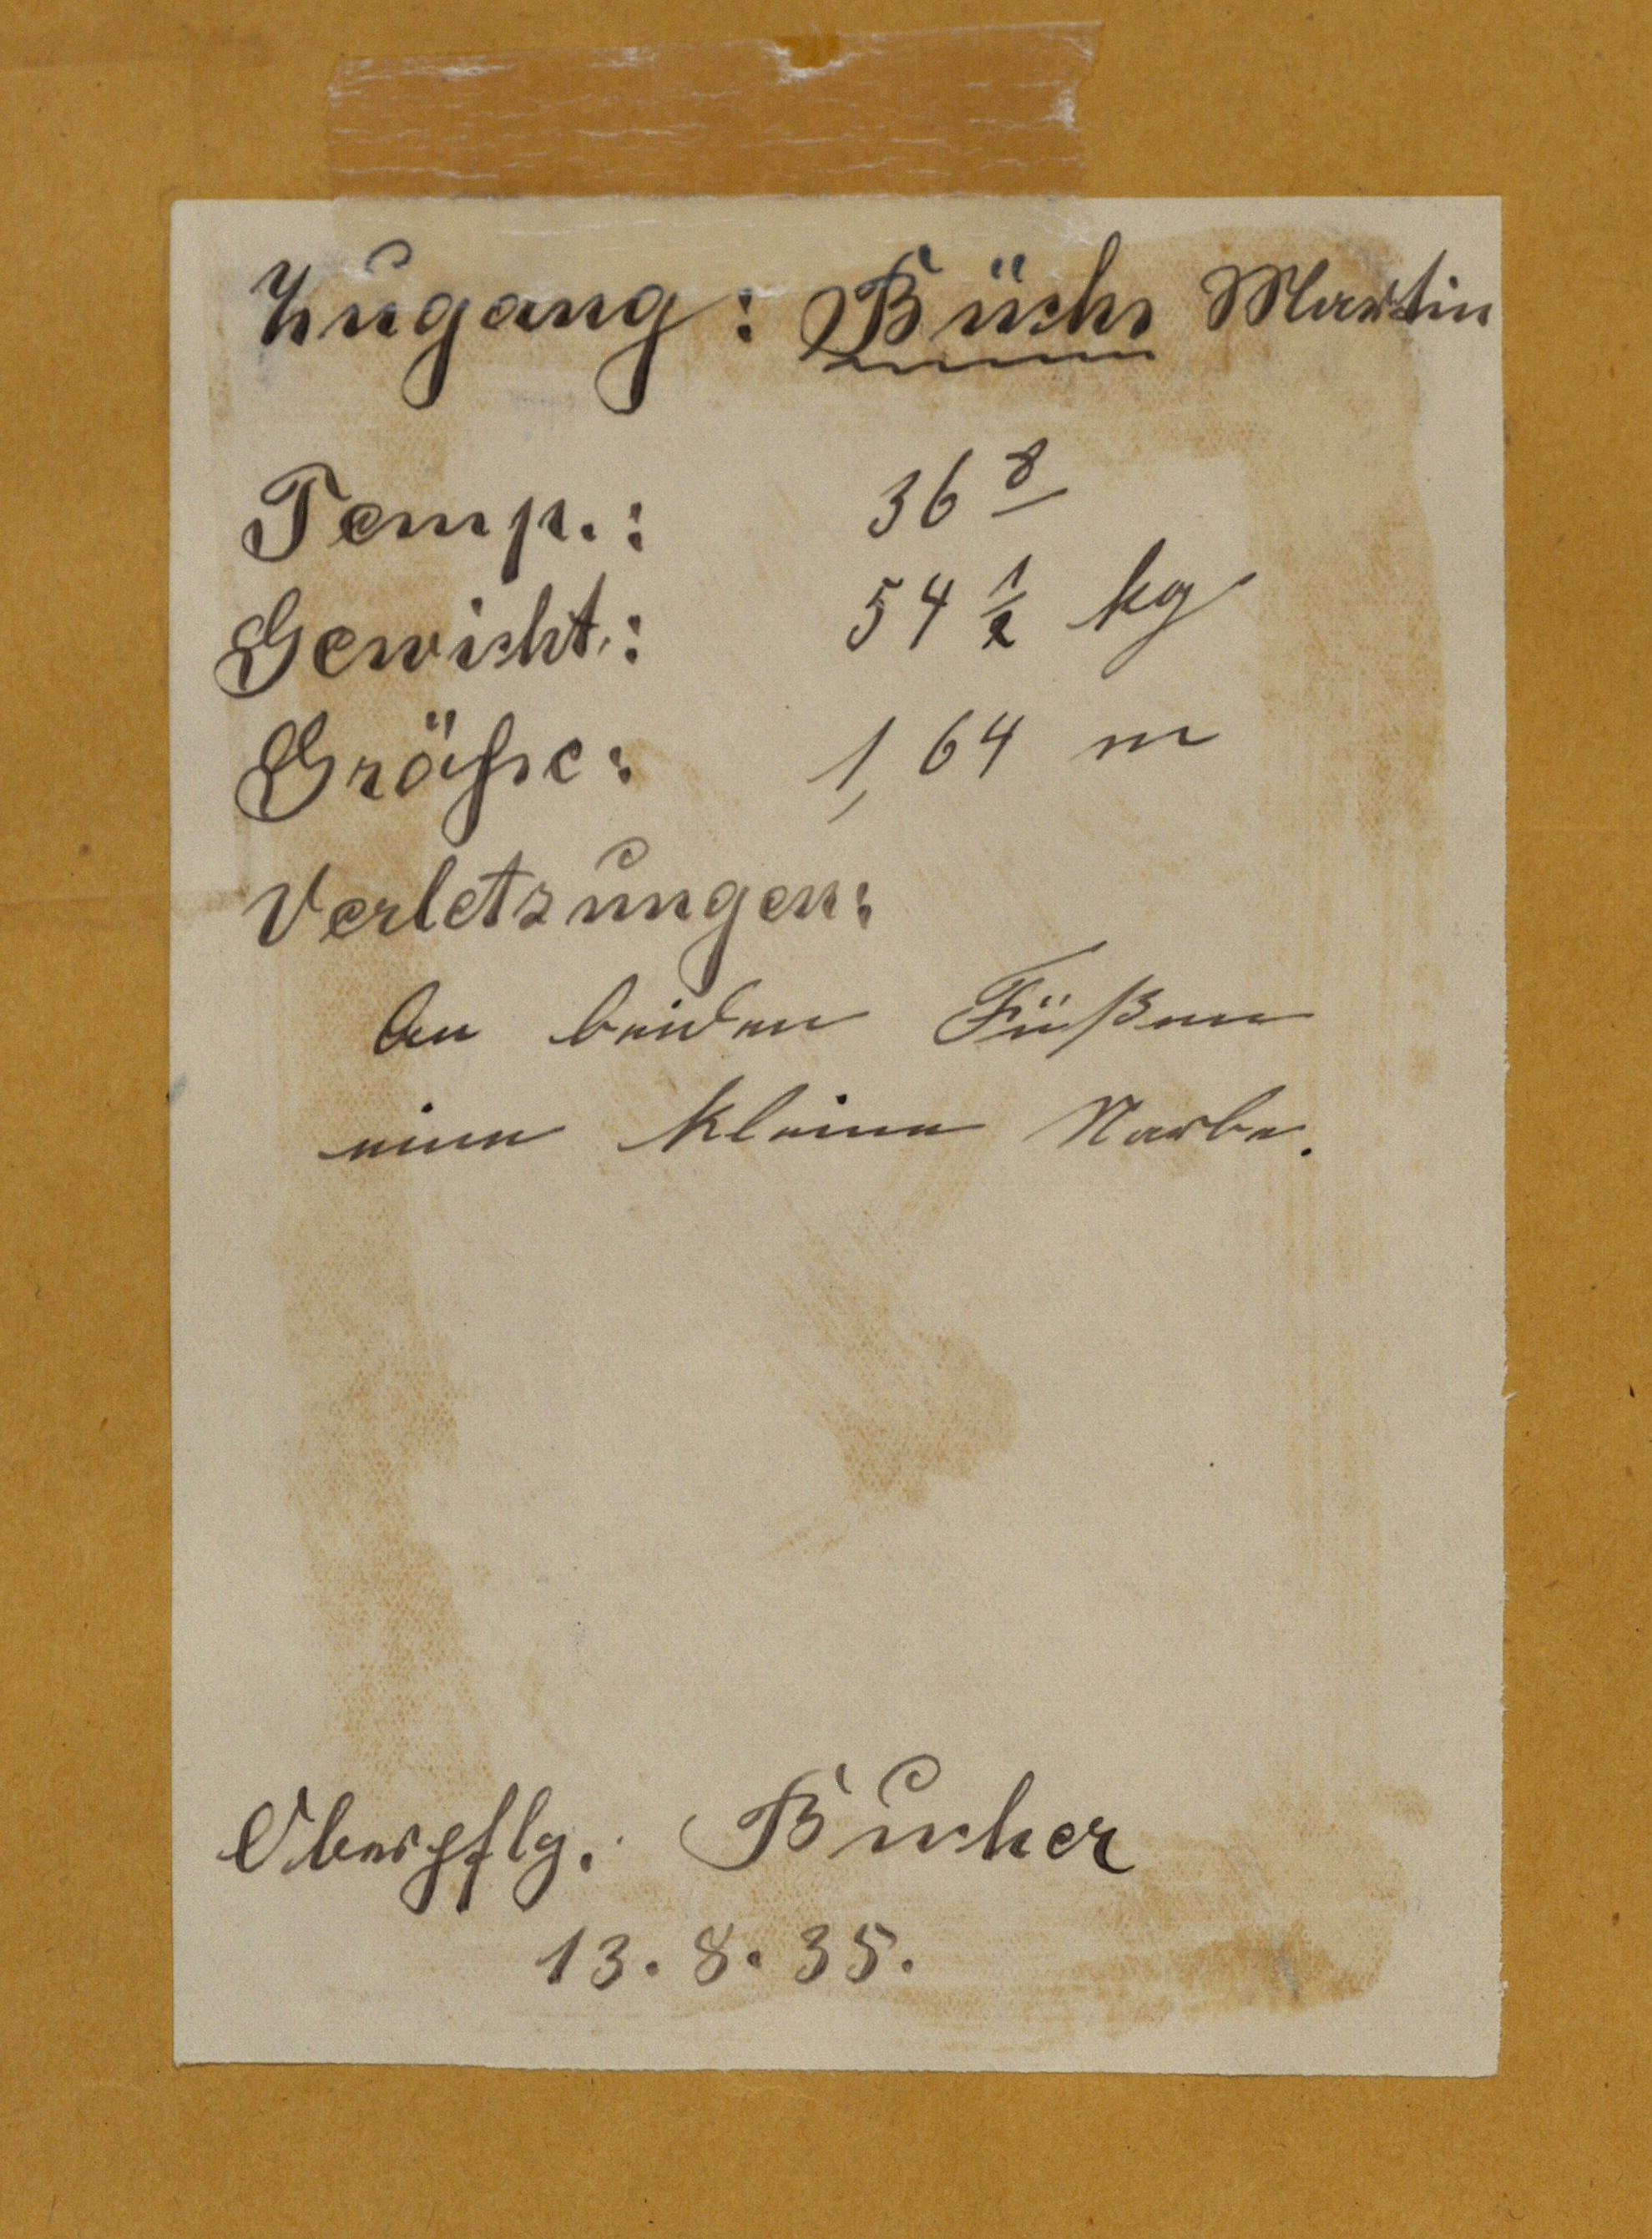 Zugang: Büchs Martin
Temp.: 36 8
Gewicht.: 54 1/2 kg
Größe: 1,64 m
Verletzungen:
An beiden Füßen
eine kleine Narbe.
Oberpflg. Bucher
13.8.35.